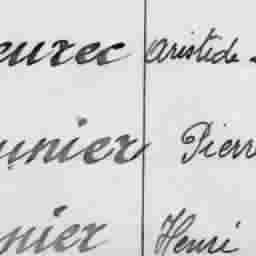 eurec Aristide
unier Pierr
nier Henri